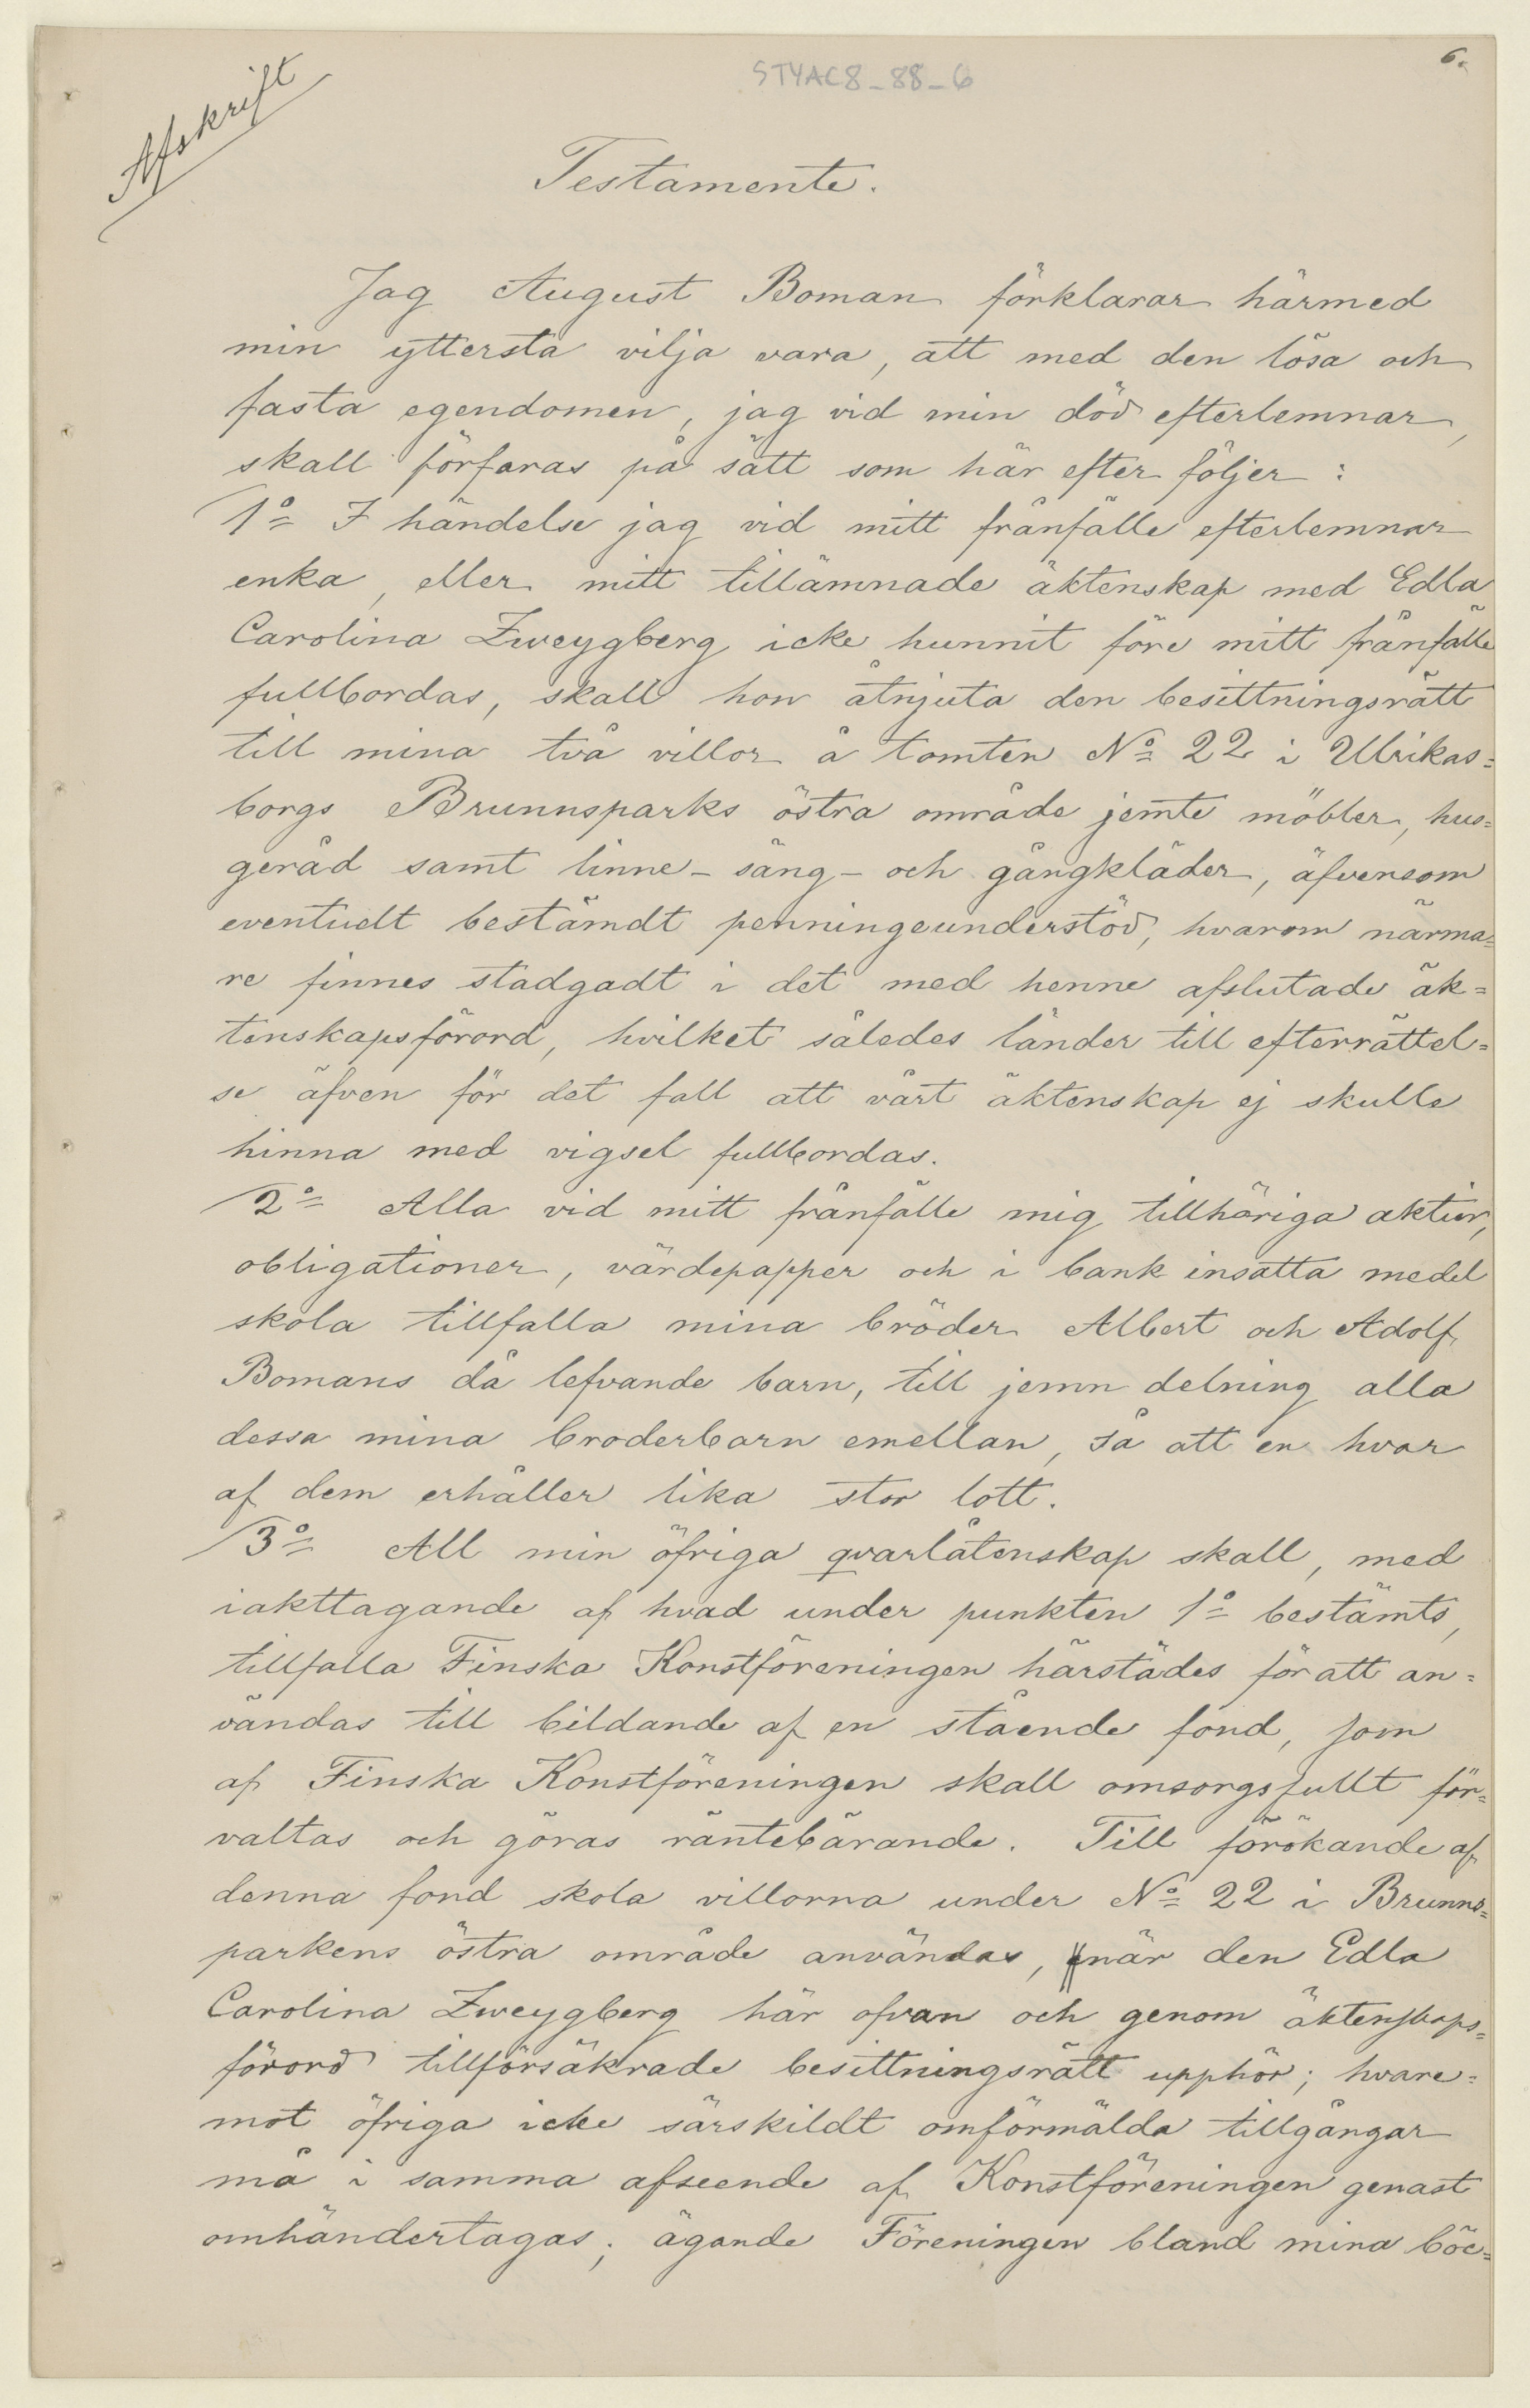 6.
STYAC8_88_6
Afskrift
Testamente.
Jag August Boman förklarar härmed
min yttersta vilja vara, att med den lösa och
fasta egendomen, jag vid min död efterlemnar,
skall förfaras på sätt som här efter följer:
1o I händelse jag vid mitt frånfälle efterlemnar
enka, eller mitt tillämnade äktenskap med Edla
Carolina Zweygberg icke hunnit före mitt frånfälle
fullbordas, skall hon åtnjuta den besittningsrätt
till mina två villor å tomten No 22 i Ulrikas=
borgs Brunnsparks östra område jemte möbler, hus=
geråd samt linne- säng- och gångkläder, äfvensom
eventuelt bestämdt penningeunderstöd, hvarom närma=
re finnes stadgadt i det med henne afslutade äk=
tenskapsförord, hvilket således länder till efterrättel=
se äfven för det fall att vårt äktenskap ej skulle
hinna med vigsel fullbordas.
2o Alla vid mitt frånfälle mig tillhöriga aktier,
obligationer, värdepapper och i bank insatta medel
skola tillfalla mina bröder Albert och Adolf
Bomans då lefvande barn, till jemn delning alla
dessa mina broderbarn emellan, så att en hvar
af dem erhåller lika stor lott.
3o All min öfriga qvarlåtenskap skall, med
iakttagande af hvad under punkten 1o bestämts,
tillfalla Finska Konstföreningen härstädes för att an=
vändas till bildande af en stående fond, som
af Finska Konstföreningen skall omsorgsfullt för=
valtas och göras räntebärande. Till förökande af
denna fond skola villorna under No 22 i Brunns=
parkens östra område användas, när den Edla
Carolina Zweygberg här ofvan och genom äktenskaps=
förord tillförsäkrade besittningsrätt upphör; hvare=
mot öfriga icke särskildt omförmälda tillgångar
må i samma afseende af Konstföreningen genast
omhändertagas; ägande Föreningen bland mina böc=